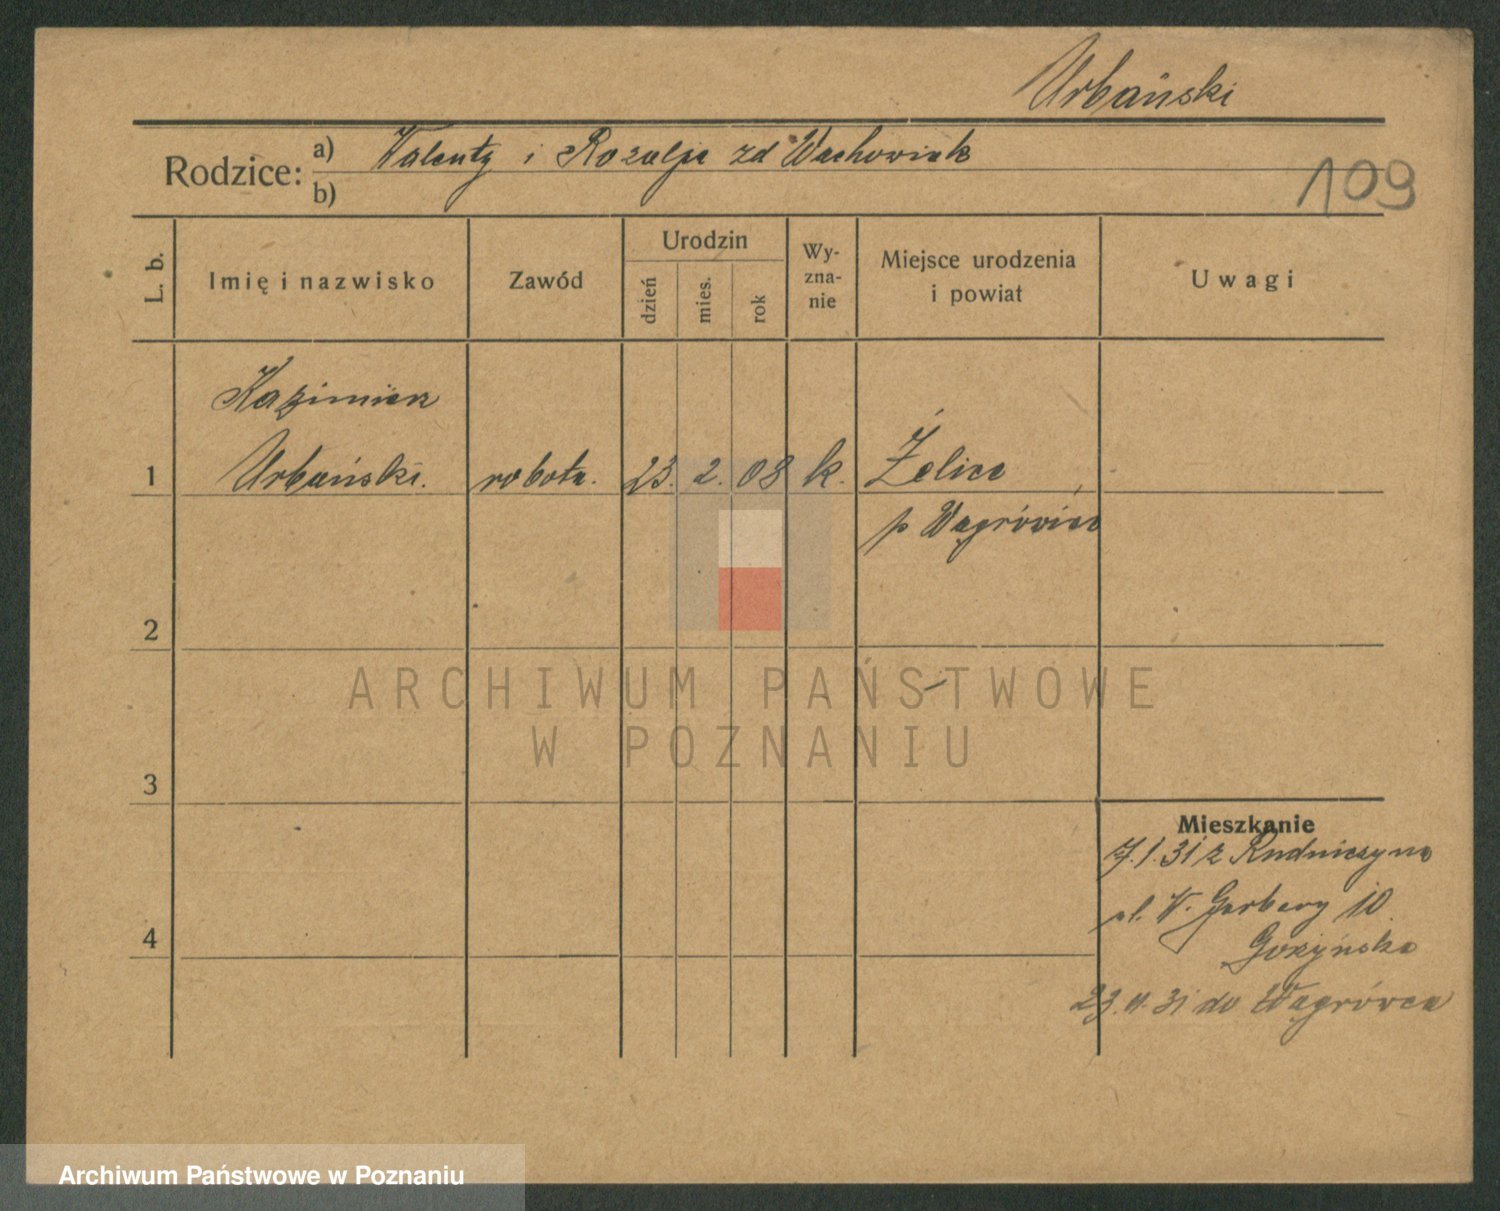 Urbański
Rodzice: a) Walenty i Rozalja zd Wachowiak
b)
109
L. b.
Imię i nazwisko
Zawód
Urodzin
dzień
mies.
rok
Wy-
zna-
nie
Miejsce urodzenia
i powiat
Uwagi
Kazimierz
1 Urbański. robotn. 23. 2. 08 k. Żelice
p Wągrówiec
2
ARCHIWUM PAŃSTWOWE
W POZNANIU
3
Mieszkanie
7.1.31 z Rudniczyna
ul. W. Garbary 10
4
Gozyńska
23. 31 do Wągrówca
Archiwum Państwowe w Poznaniu